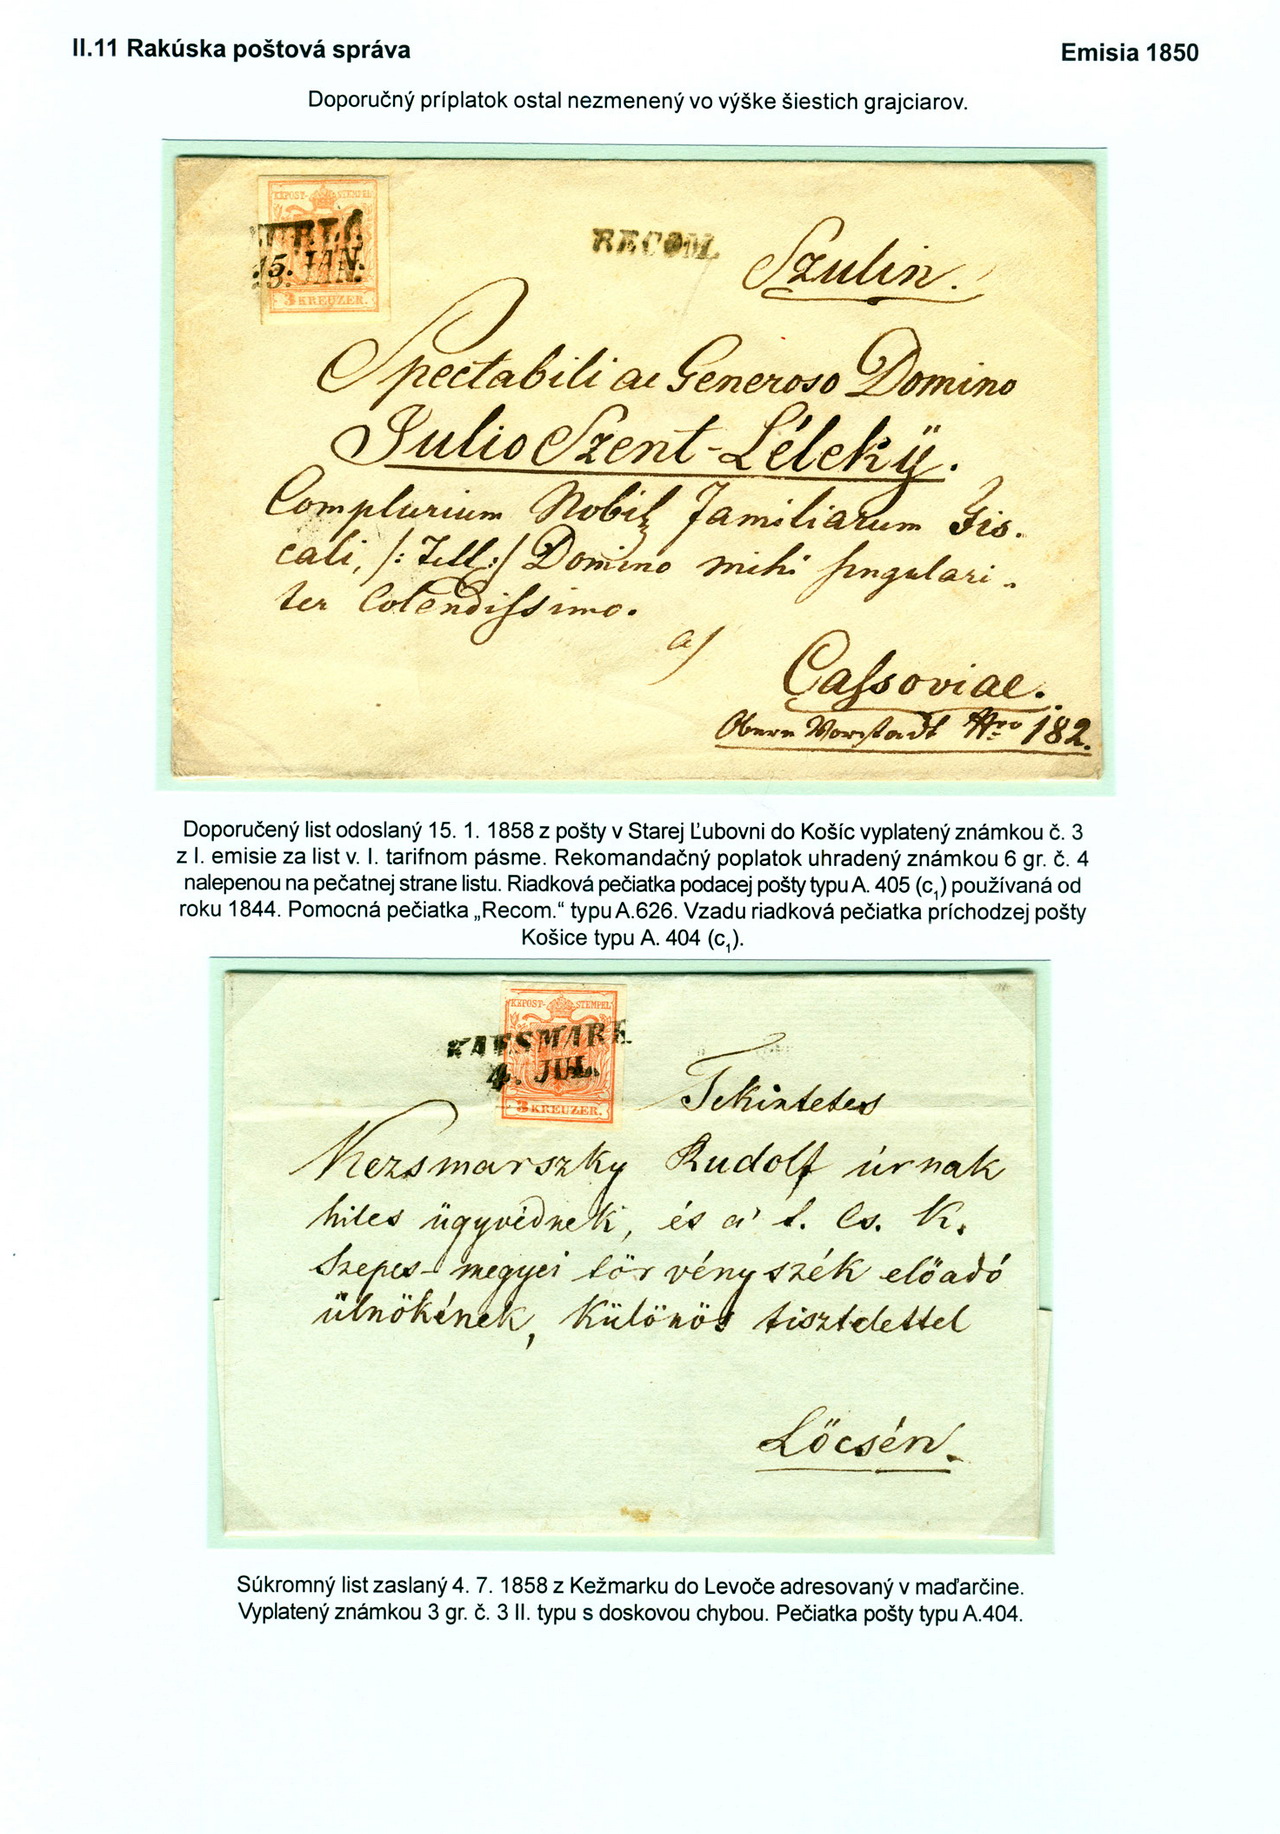 II.11 Rakúska poštová správa
Emisia 1850
Doporučný príplatok ostal nezmenený vo výške šiestich grajciarov.
KKPOST-STEMPEL
15. JAN.
3 KREUZER.
RECOM.
Szulin.
Spectabili ac Generoso Domino
Julio Szent-Léleky.
Complurium Nobil Familiarum Fis-
cali, /: Titt :/ Domino mihi singulari-
ter Colendissimo.
a/
Cassoviae.
Obere Vorstadt Nro 182.
Doporučený list odoslaný 15. 1. 1858 z pošty v Starej Ľubovni do Košíc vyplatený známkou č. 3
z I. emisie za list v. I. tarifnom pásme. Rekomandačný poplatok uhradený známkou 6 gr. č. 4
nalepenou na pečatnej strane listu. Riadková pečiatka podacej pošty typu A. 405 (c₁) používaná od
roku 1844. Pomocná pečiatka „Recom.“ typu A.626. Vzadu riadková pečiatka príchodzej pošty
Košice typu A. 404 (c₁).
KKPOST-STEMPEL
KAESMARK
4. JUL.
3 KREUZER.
Tekintetes
Kezsmarszky Rudolf úrnak
hites ügyvédnek, és a' t. Cs. K.
Szepes-megyei törvényszék előadó
ülnökének, különös tisztelettel
Lőcsén.
Súkromný list zaslaný 4. 7. 1858 z Kežmarku do Levoče adresovaný v maďarčine.
Vyplatený známkou 3 gr. č. 3 II. typu s doskovou chybou. Pečiatka pošty typu A.404.